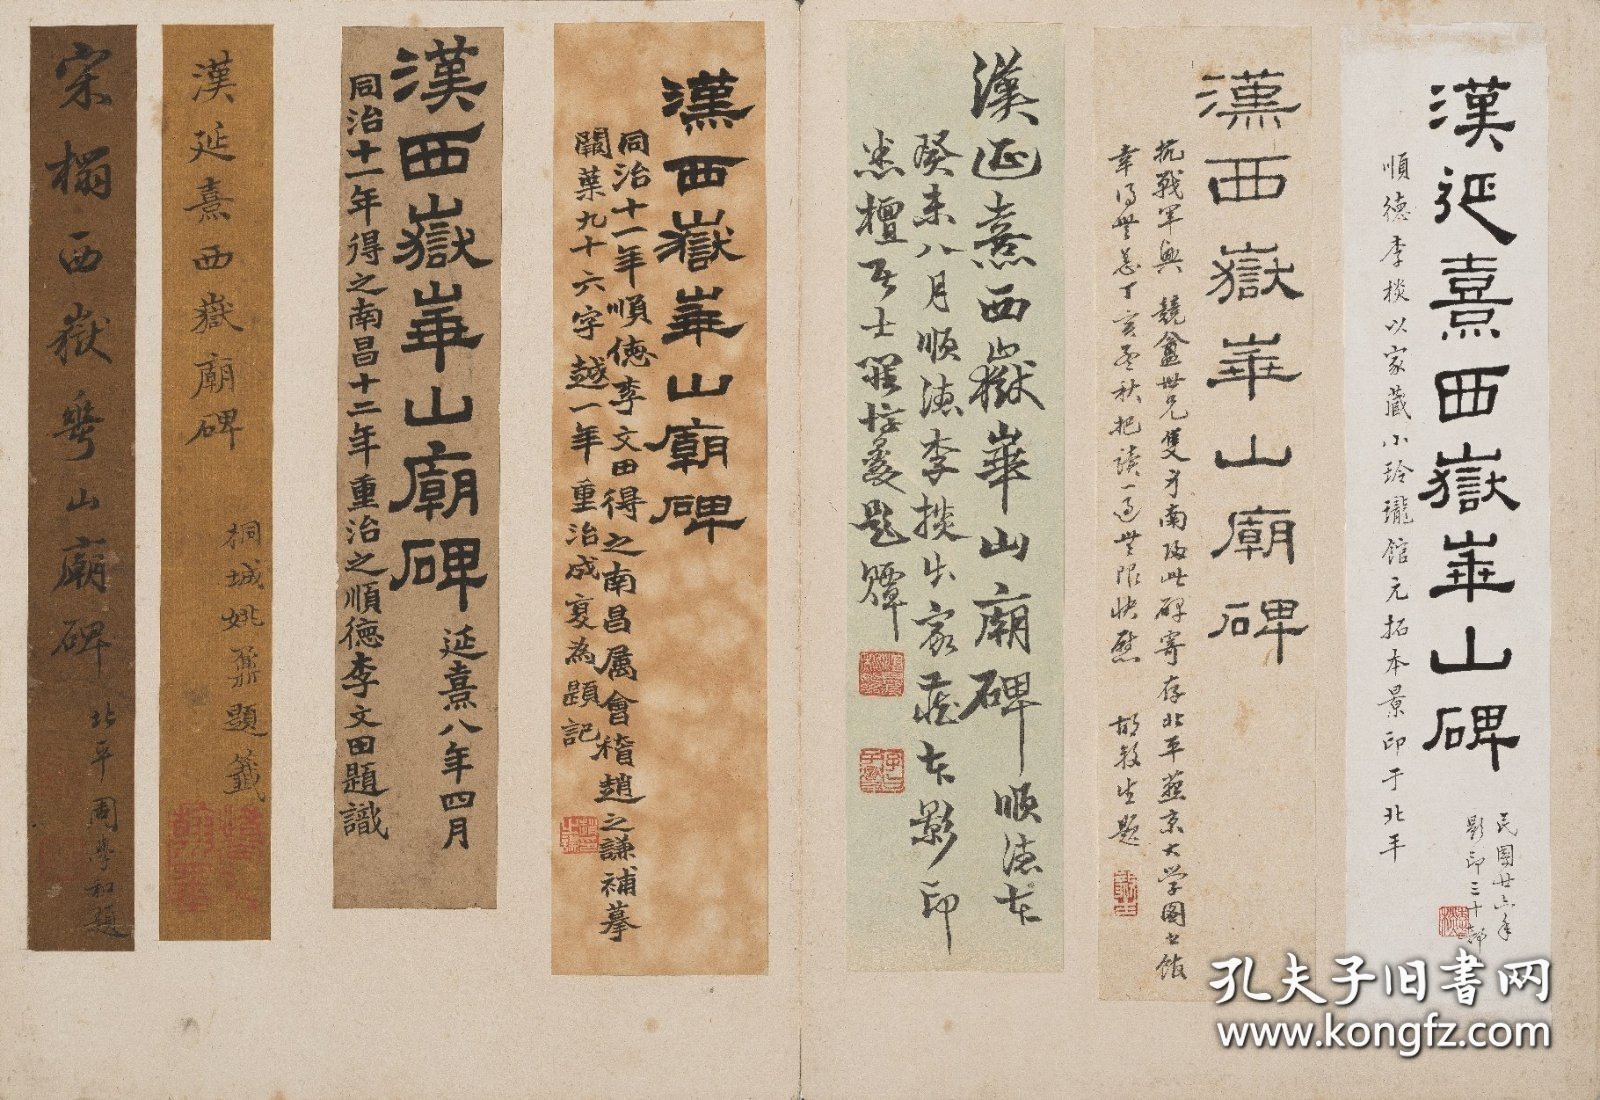 漢延熹西嶽華山碑
順德李棪以家藏小玲瓏館元拓本景印于北平
民國廿六年
影印三十部
漢西嶽華山廟碑
抗戰軍興 競盦世兄隻身南歸此碑寄存北平燕京大學圖書館
幸得無恙丁亥孟秋把讀一過無限快慰 胡毅生題
漢延熹西嶽華山廟碑 順德本
癸未八月順德李棪出家藏本影印
漢西嶽華山廟碑
同治十一年順德李文田得之南昌屬會稽趙之謙補摹
闕葉九十六字越一年重治成㪅為題記
漢西嶽華山廟碑 延熹八年四月
同治十一年得之南昌十二年重治之順德李文田題識
漢延熹西嶽廟碑
桐城姚鼐題籤
宋榻西嶽華山廟碑
北平周學和題
孔夫子旧书网
www.kongfz.com